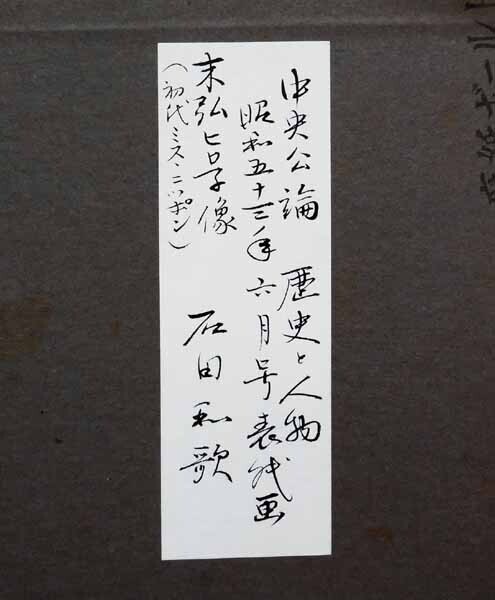 中央公論 歴史と人物
昭和五十三年六月号表紙画
末弘ヒロ子像
(初代ミス・ニッポン)
石田和歌